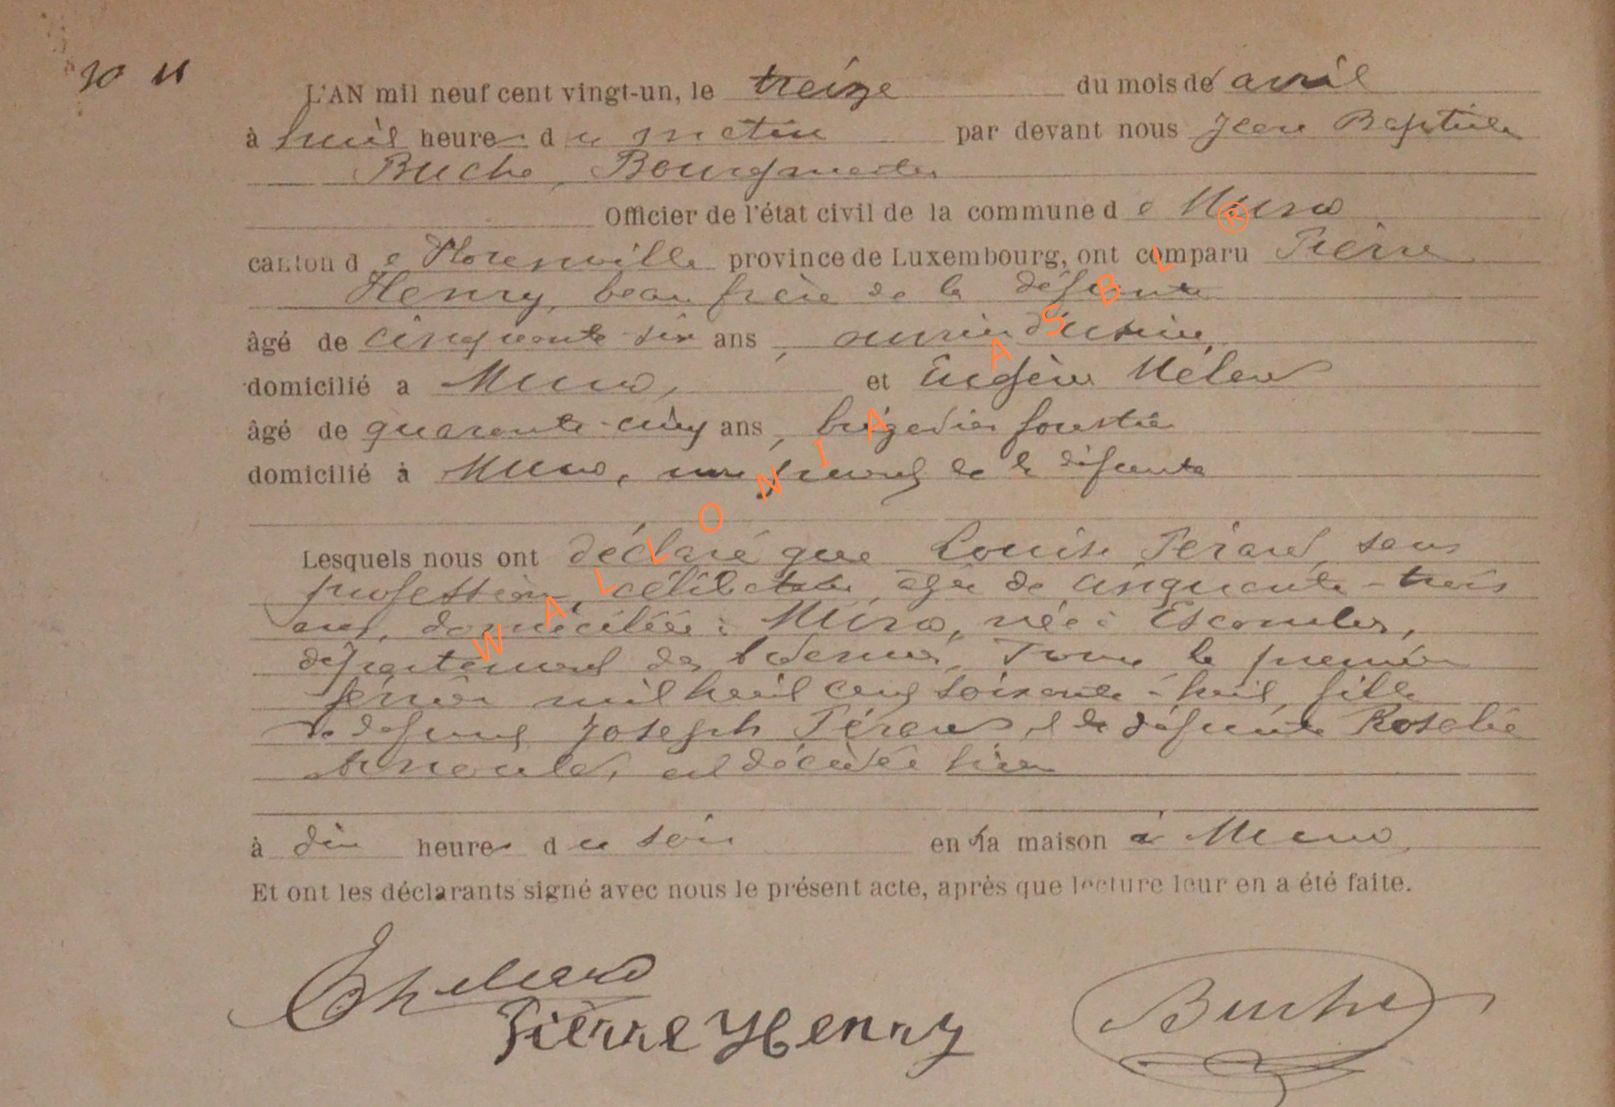 L'AN mil neuf cent vingt-un, le treize du mois de avril
à huit heures du matin par devant nous Jean Baptiste
Buche, Bourgmestre
Officier de l'état civil de la commune de Muno
canton de Florenville province de Luxembourg, ont comparu Pierre
Henry, beau frère de la défunte
âgé de cinquante-six ans, ouvrier d'usine,
domicilié à Muno, et
âgé de quarante-cinq ans, brigadier forestier
domicilié à Muno, de la défunte
Lesquels nous ont déclaré que Louise Pérard, sans
profession, célibataire, âgée de cinquante-trois
ans, domiciliée à Muno, née à Escombres,
département des Ardennes, France le premier
février mil huit cent soixante-huit, fille
de défunt Joseph Pérard et de défunte Rosalie
Arnould, est décédée hier
à dix heures du soir en sa maison à Muno
Et ont les déclarants signé avec nous le présent acte, après que lecture leur en a été faite.
Pierre Henry
Buche
WALLONIA ASBL ®